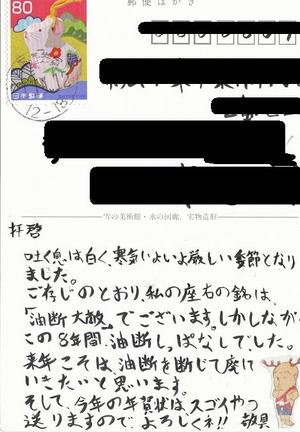 80
郵便はがき
日本郵便
12-18
雪の美術館・氷の回廊、実物造形
拝啓
吐く息は白く、寒気いよいよ厳しい季節となり
ました。
ご存じのとおり、私の座右の銘は、
「油断大敵」でございます。しかしなが
この8年間、油断しっぱなしでした。
来年こそは、油断を断じて廃に
いきたいと思います。
そして、今年の年賀状は、スゴイやつ
送りますので、よろしくネ!! 敬具